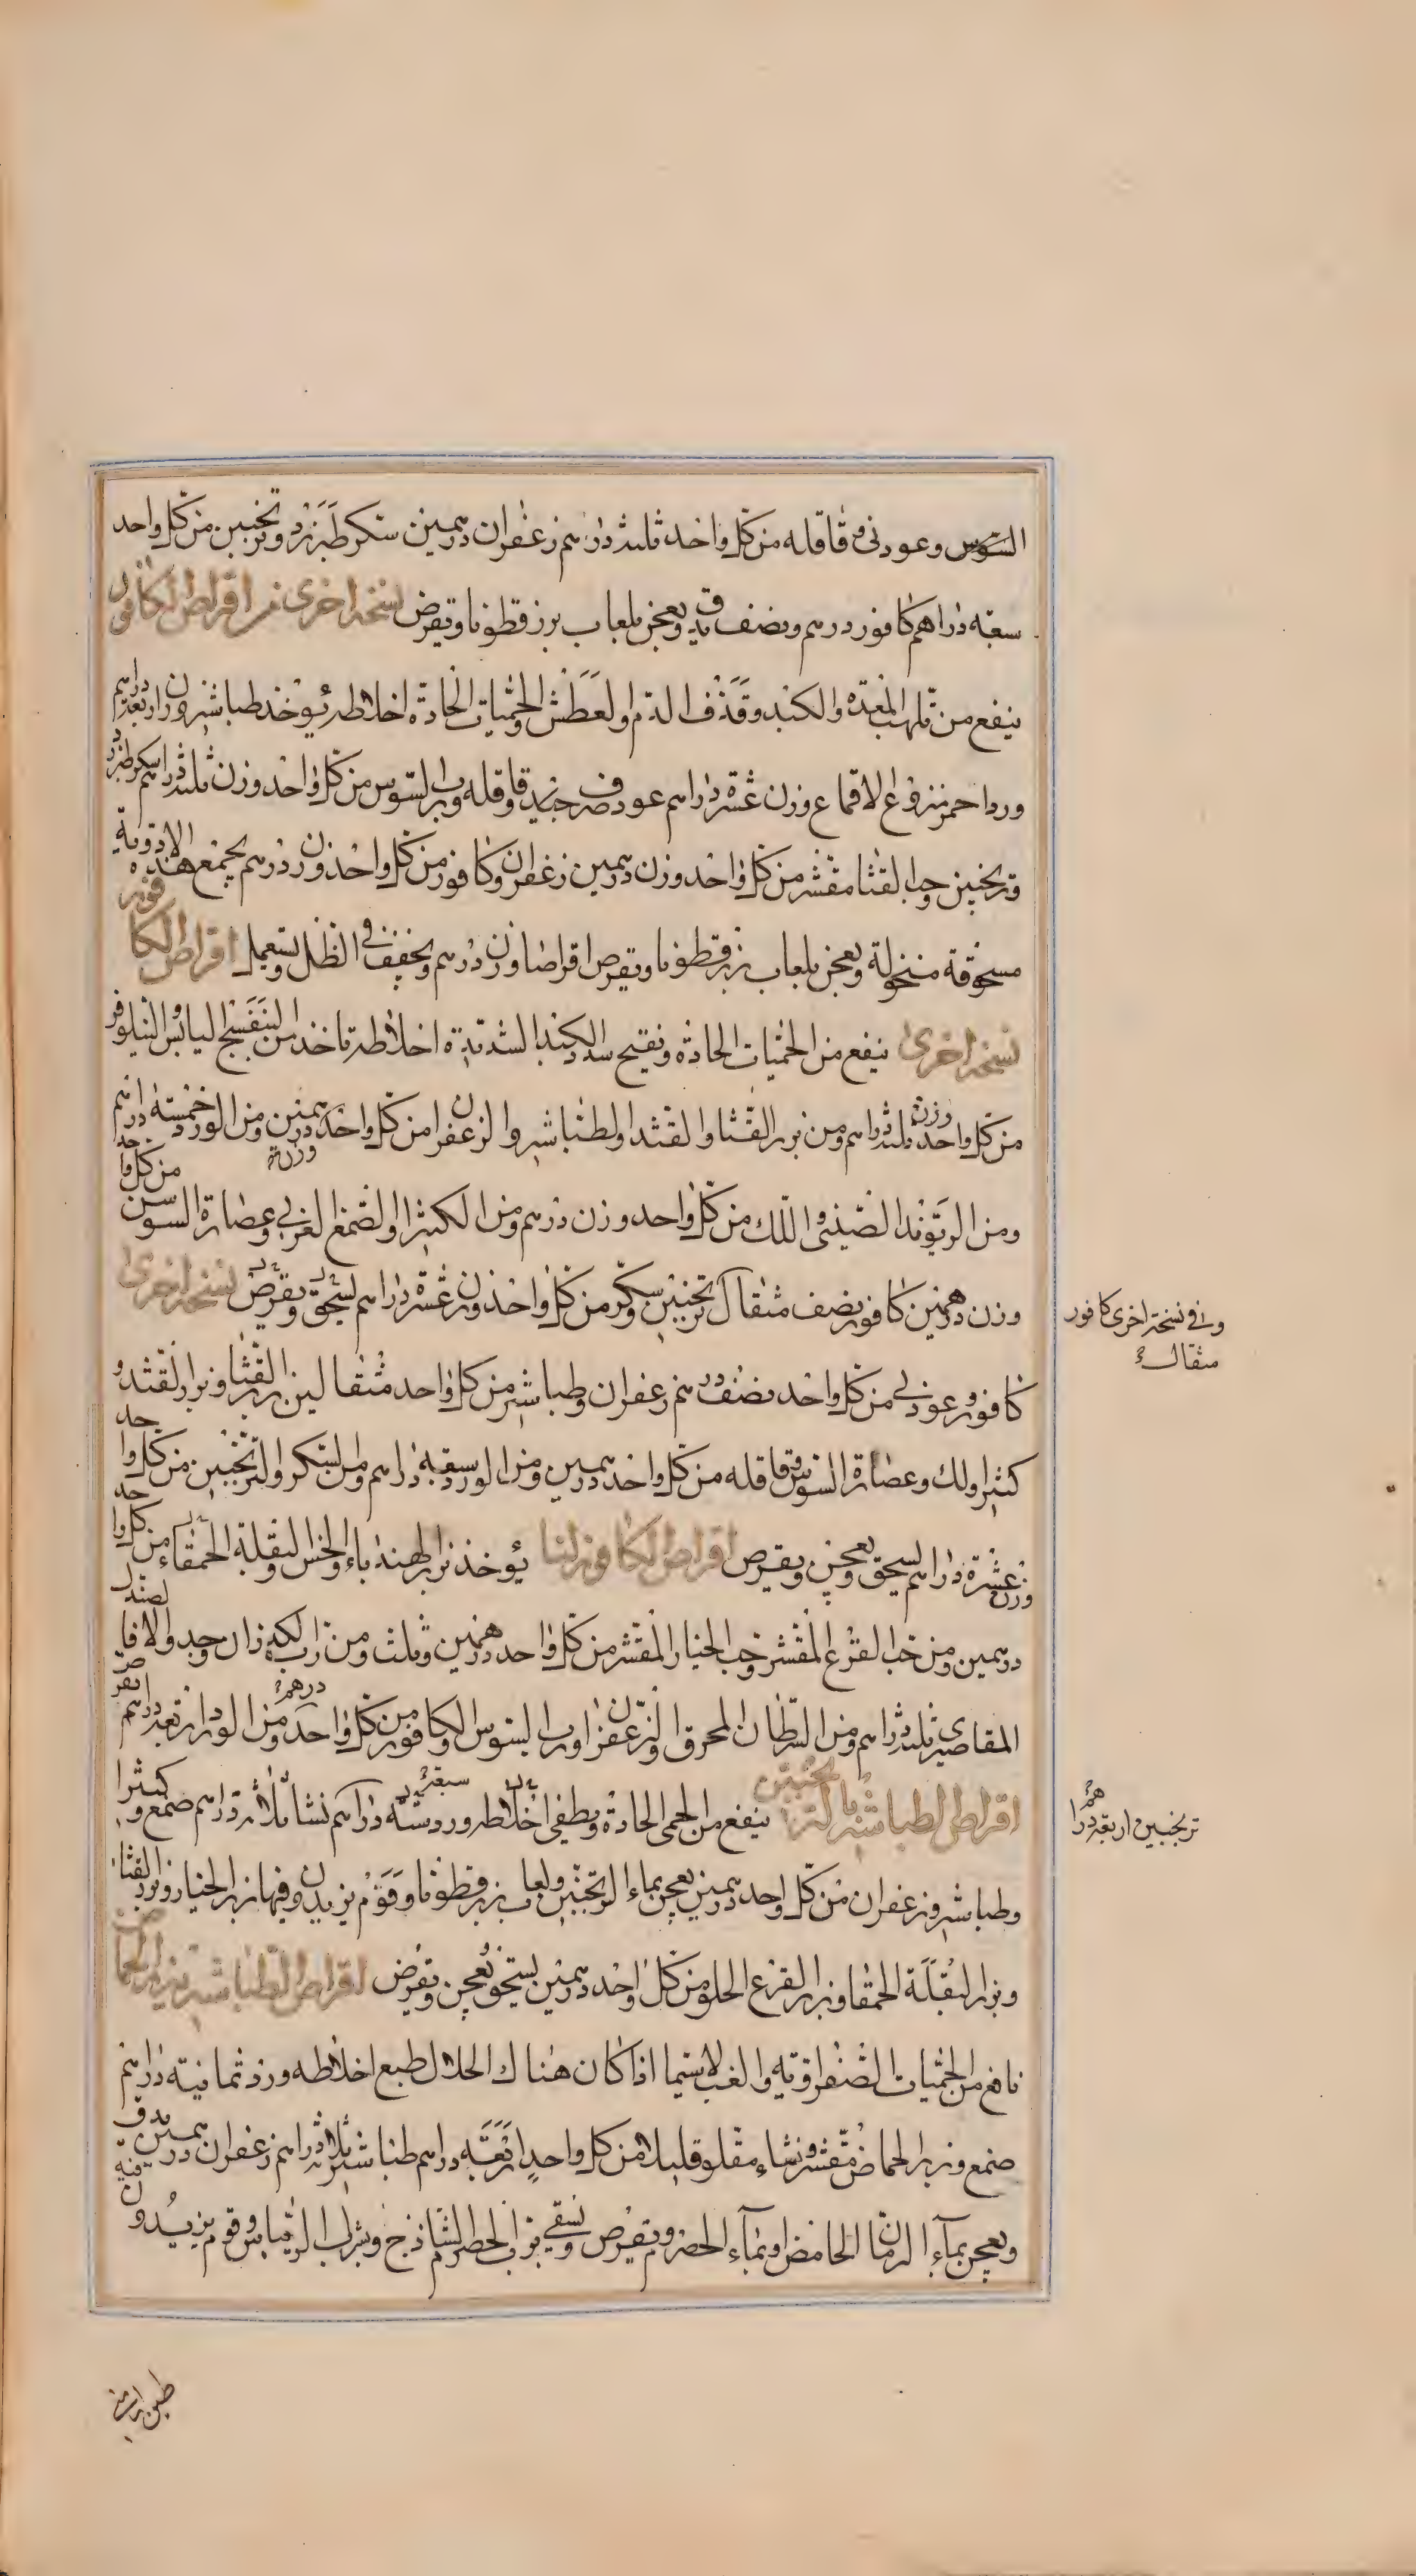 السوس وعود ني وقاقله من كل واحد ثلثة دراهم زعفران درهمين سكر طبرزد وترنجبين من كل واحد
سبعة دراهم كافور درهم ونصف يدق ويعجن بلعاب بزرقطونا ويقرص نسخة اخرى من اقراص الكافور
ينفع من تلهب المعدة والكبد وقذف الدم والعطش والحميات الحادة اخلاطه يؤخذ طباشير وزن اربعة دراهم
ورد احمر منزوع الاقماع وزن عشرة دراهم عود صرف جيد وقاقله ورب السوس من كل واحد وزن ثلثة دراهم سكر طبرزد
وترنجبين وحب القثا مقشر من كل واحد وزن درهمين زعفران وكافور من كل واحد وزن درهم يجمع هذه الادوية
مسحوقة منخولة ويعجن بلعاب بزرقطونا ويقرص اقراصا وزن درهم ويجفف في الظل ويستعمل اقراص الكافور
نسخة اخرى ينفع من الحميات الحادة ويفتح سدد الكبد الشديدة اخلاطه تاخذ من البنفسج اليابس والنيلوفر
من كل واحد وزن ثلثة دراهم ومن بزر القثا والقثد والطباشير والزعفران من كل واحد وزن درهمين ومن الورد خمسة دراهم
ومن الريوند الصيني واللك من كل واحد وزن درهم ومن الكثيرا والصمغ العربي وعصارة السوس من كل واحد
وزن درهمين كافور نصف مثقال ترنجبين وسكر من كل واحد وزن عشرة دراهم يسحق ويقرص نسخة اخرى
كافور وعود ني من كل واحد نصف درهم زعفران وطباشير من كل واحد مثقالين بزر القثا وبزر القثد و
كثيرا ولك وعصارة السوس وقاقله من كل واحد درهمين ومن الورد سبعة دراهم ومن السكر والترنجبين من كل واحد
وزن عشرة دراهم يسحق ويعجن ويقرص اقراص الكافور لنا يؤخذ بزر الهندباء والخس والبقلة الحمقاء من كل واحد
درهمين ومن حب القرع المقشر وحب الخيار المقشر من كل واحد درهمين وثلث ومن تراب الكهربا وزن واحد والصندل
المقاصيري ثلثة دراهم ومن السرطان المحرق والزعفران ورب السوس والكافور من كل واحد درهم ومن الورد اربعة دراهم
اقراص الطباشير بالترنجبين ينفع من الحمى الحادة ويطفي اخلاطه ورد ستة دراهم نشا ثلاثة دراهم صمغ وكثيرا
وطباشير وزعفران من كل واحد درهمين يعجن بماء الترنجبين ولعاب بزرقطونا وقوم يزيدون فيها بزر الخيار وبزر القثا
وبزر البقلة الحمقا وبزر القرع الحلو من كل واحد درهمين يسحق ويعجن ويقرص اقراص الطباشير ببزر الحماض
نافع من الحميات الصفراوية والغب لاسيما اذا كان هناك انحلال طبع اخلاطه ورد ثمانية دراهم
صمغ وبزر الحماض مقشر ونشاء مقلو قليلا من كل واحد اربعة دراهم طباشير ثلاثة دراهم زعفران درهمين يدق
ويعجن بماء الرمان الحامض او بماء الحصرم ويقرص ويسقى بشراب الحصرم الساذج وبشراب الريباس وقوم يزيدون فيه
وفي نسخة اخرى كافور
مثقال
ترنجبين اربعة دراهم
سبعة
طين ارمني